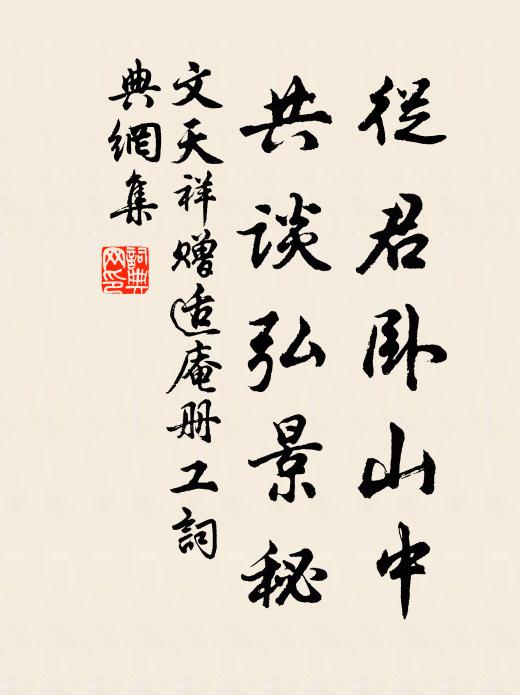 從君卧山中
共談弘景秘
文天祥赠适庵册工詞
典網集
詞典
网印